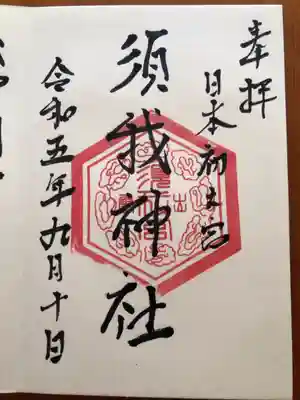 奉拝
日本初之宮
須我神社
令和五年九月十日